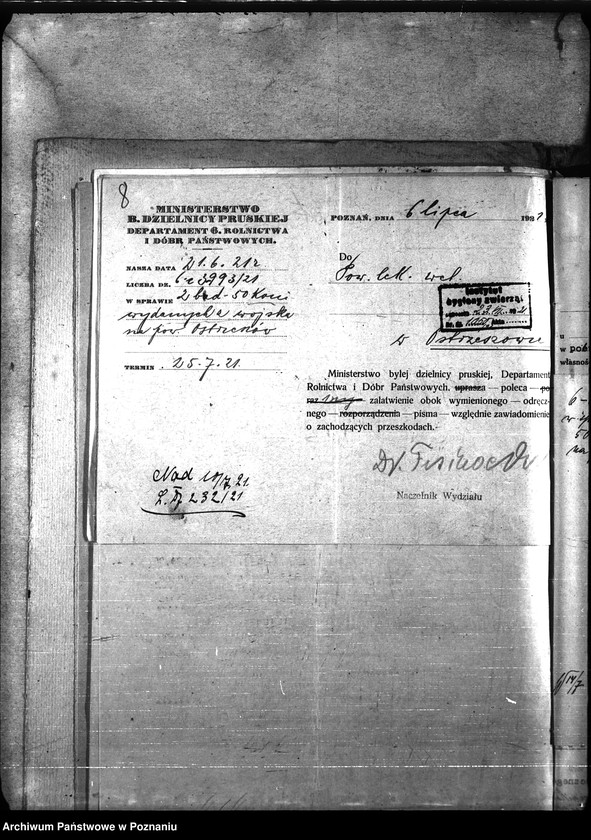 8
MINISTERSTWO
B. DZIELNICY PRUSKIEJ
DEPARTAMENT 6. ROLNICTWA
I DÓBR PAŃSTWOWYCH.
NASZA DATA 21.6.21r
LICZBA DZ. 6 e 3993/21
W SPRAWIE 50 koni
wydanych z wojska
na pow. Ostrzeszów
TERMIN 25.7.21.
Nad 10/7.21
L. 232/21
POZNAŃ, DNIA 6 lipca 1921.
Do
Pow. lek. wet.
w Ostrzeszowie
Ministerstwo byłej dzielnicy pruskiej, Departament
Rolnictwa i Dóbr Państwowych, uprasza — poleca —
załatwienie obok wymienionego — odręcz-
nego — rozporządzenia — pisma — względnie zawiadomienie
o zachodzących przeszkodach.
Dr.
Naczelnik Wydziału
w poś
własnoś
50
na
14/7
Archiwum Państwowe w Poznaniu